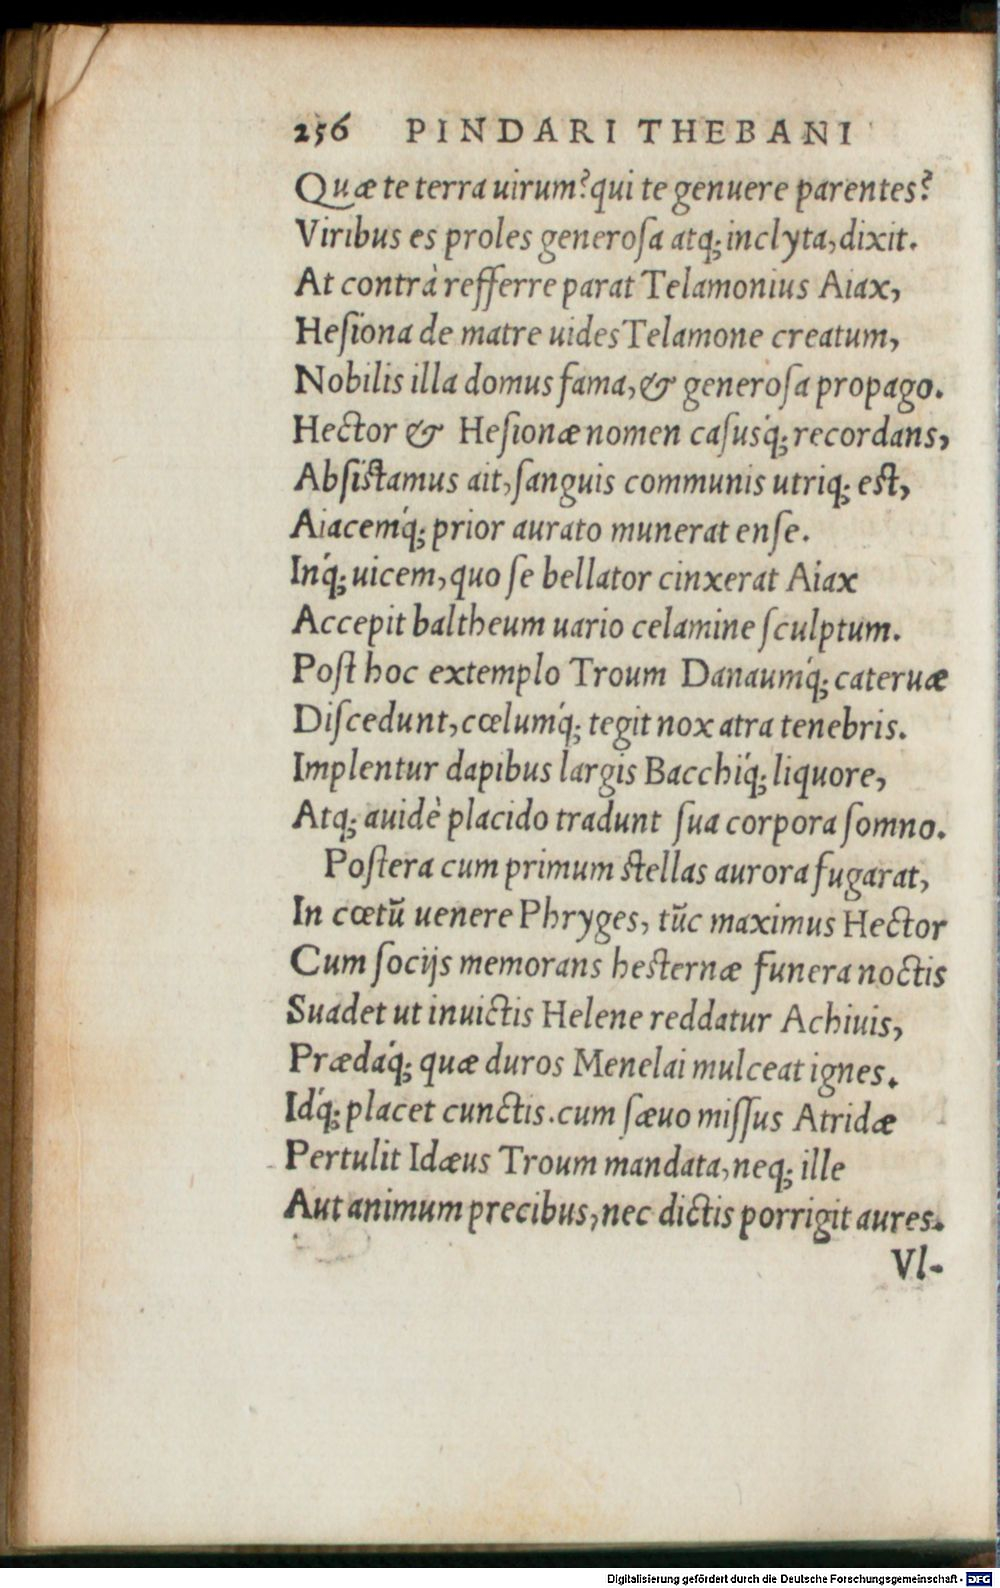 256 PINDARI THEBANI
Quæ te terra uirum? qui te genuere parentes?
Viribus es proles generoſa atq; inclyta, dixit.
At contrà refferre parat Telamonius Aiax,
Heſiona de matre uides Telamone creatum,
Nobilis illa domus fama, & generoſa propago.
Hector & Heſionæ nomen caſusq́; recordans,
Abſiſtamus ait, ſanguis communis utriq; eſt,
Aiacemq́; prior aurato munerat enſe.
Inq́; uicem, quo ſe bellator cinxerat Aiax
Accepit baltheum uario celamine ſculptum.
Poſt hoc extemplo Troum Danaumq́; cateruæ
Diſcedunt, cœlumq́; tegit nox atra tenebris.
Implentur dapibus largis Bacchiq́; liquore,
Atq; auidè placido tradunt ſua corpora ſomno.
Poſtera cum primum ſtellas aurora fugarat,
In cœtũ uenere Phryges, tũc maximus Hector
Cum ſocijs memorans heſternæ funera noctis
Suadet ut inuictis Helene reddatur Achiuis,
Prædaq́; quæ duros Menelai mulceat ignes.
Idq́; placet cunctis. cum ſæuo miſſus Atridæ
Pertulit Idæus Troum mandata, neq; ille
Aut animum precibus, nec dictis porrigit aures.
Vl-
Digitalisierung gefördert durch die Deutsche Forschungsgemeinschaft - DFG